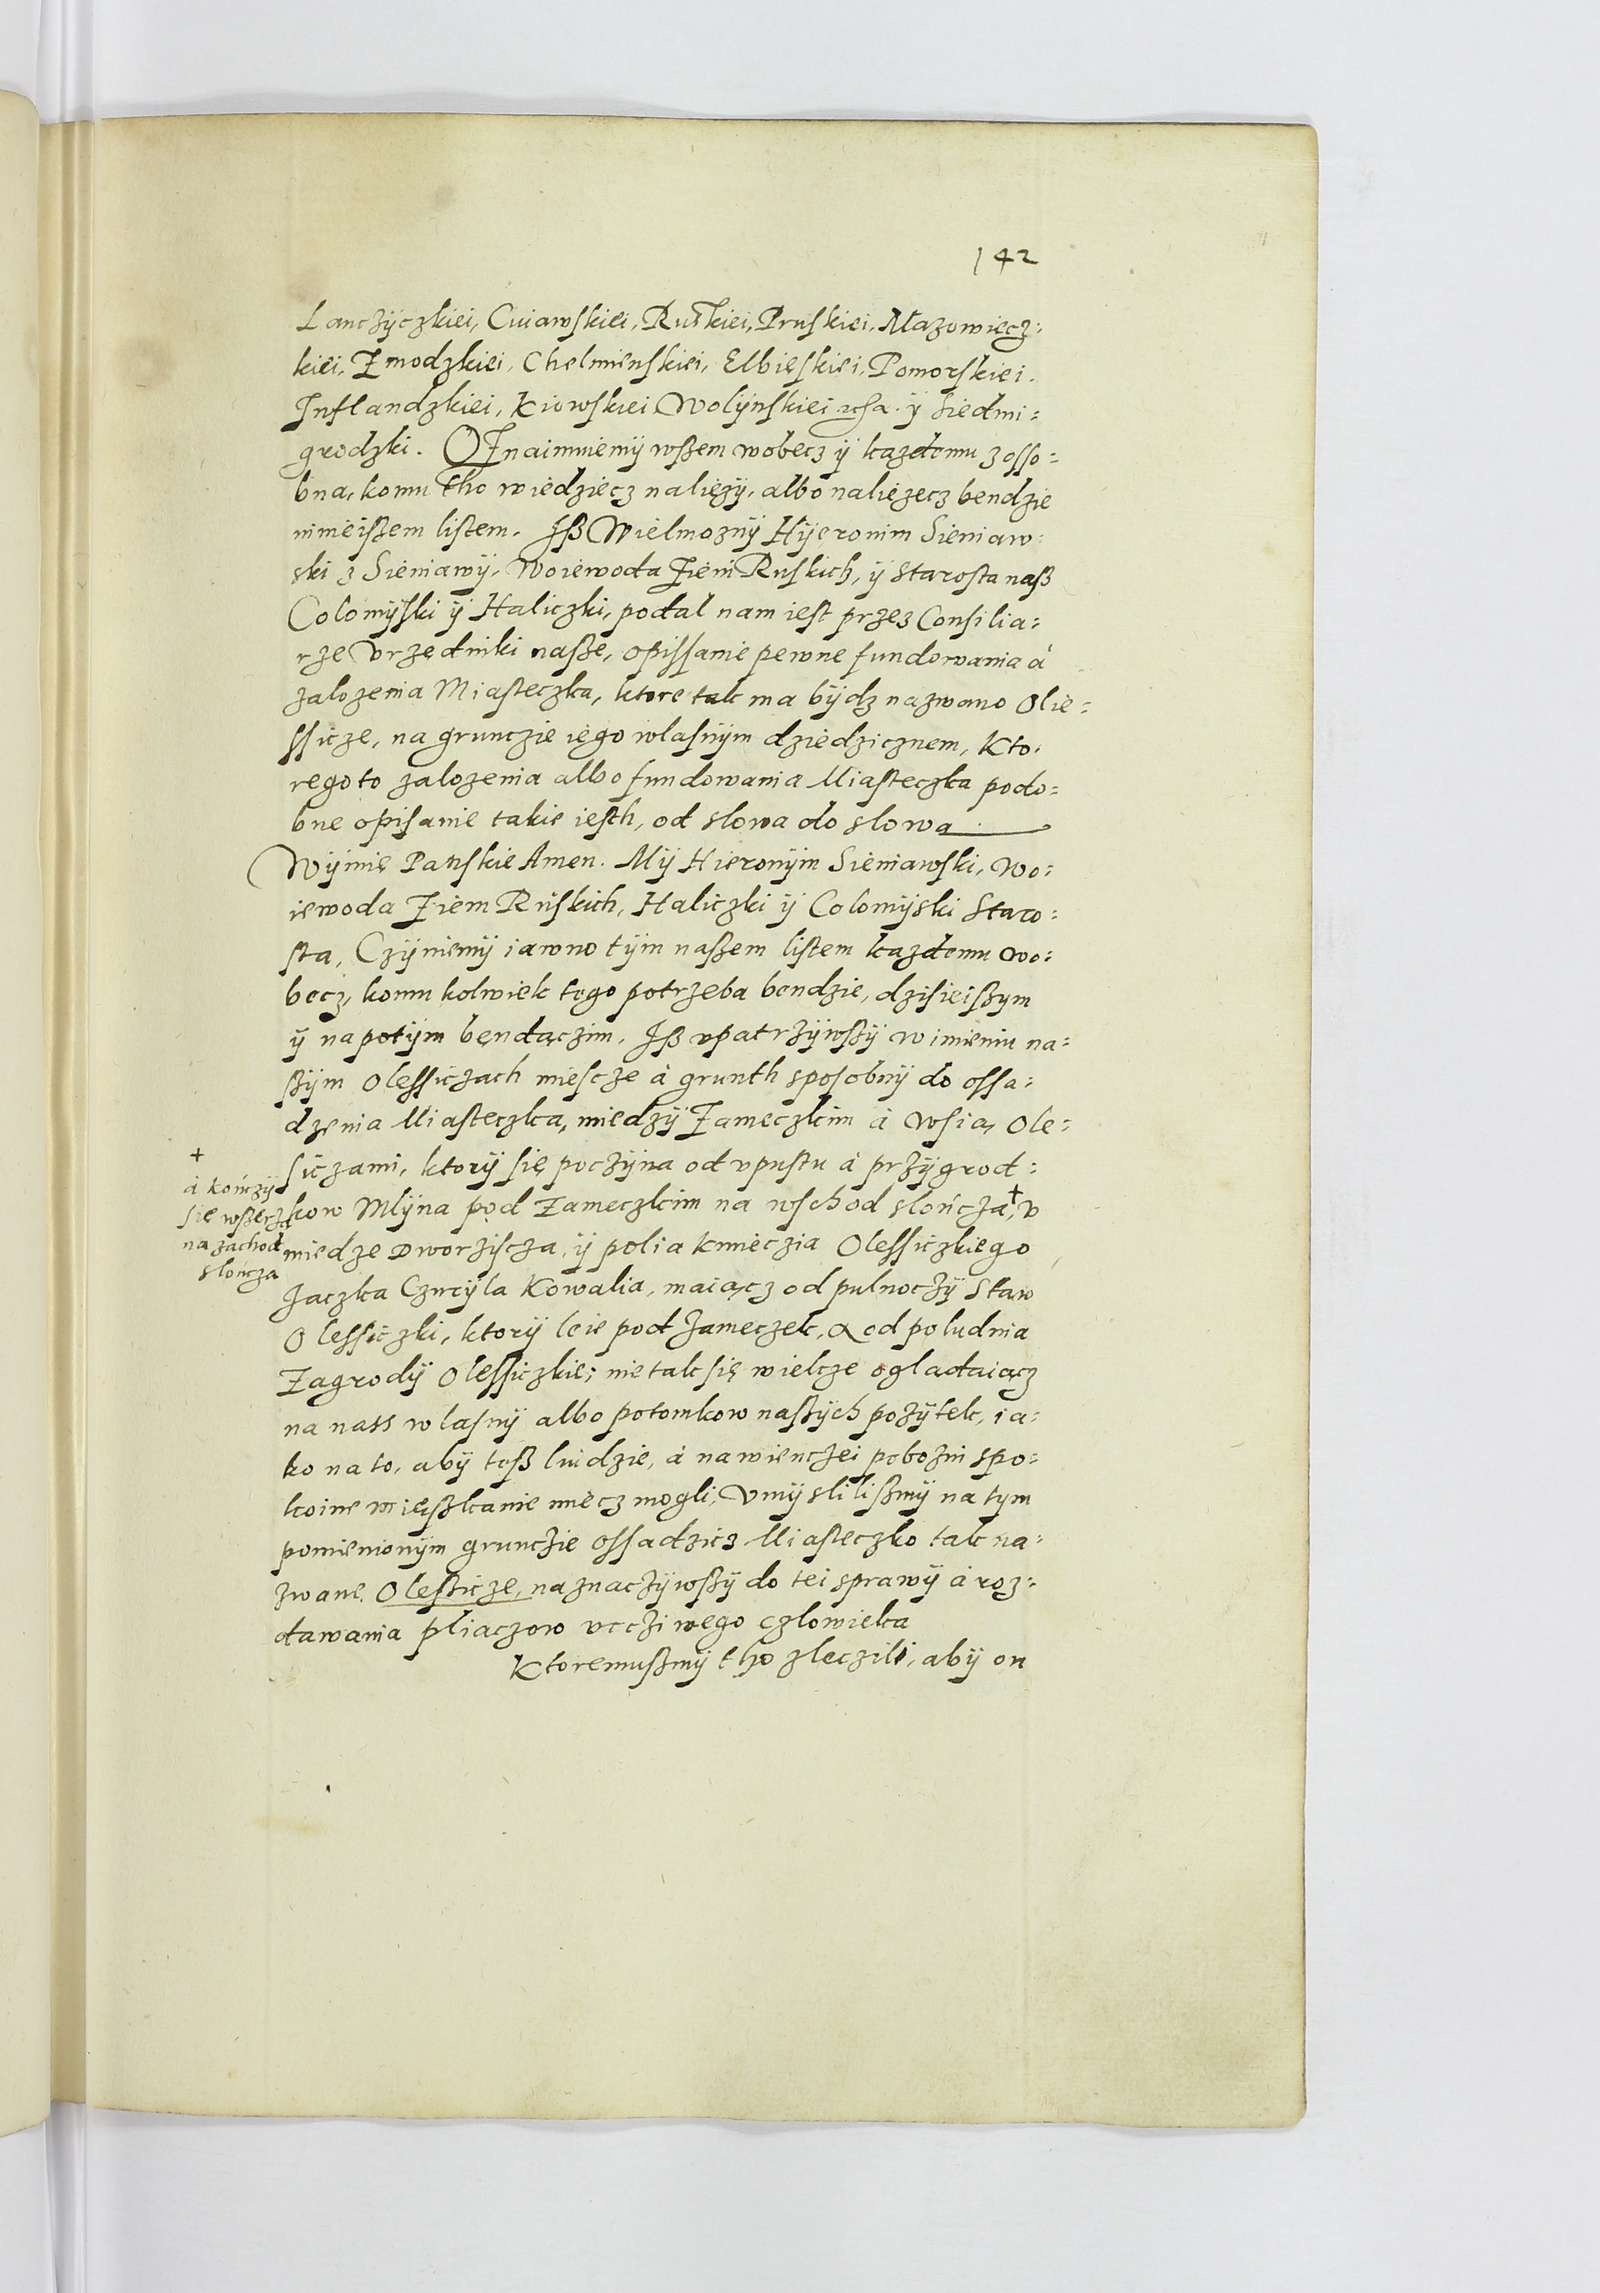 142
Lanczÿczkiei, Cuiawskiei, Ruskiei, Pruskiei, Mazowiecz:
kiei, Zmodzkiei, Chelmienskiei, Elbieskiei, Pomorskiei,
Inflandzkiei, Kiowskiei Wolÿnskiei ÿ Siedmi:
grodzki. OZnaimuiemÿ wßem wobecz ÿ kazdemu z osso:
bna, komu tho wiedziecz naliezÿ, albo naliezecz bendzie
ninieißem listem. Iß Wielmoznÿ Hÿeronim Sieniaw:
ski z Sieniawÿ, Woiewoda Ziem Ruskich, ÿ Starosta naß
Colomÿski ÿ Haliczki, podal nam iest przez Consilia:
rze Vrzedniki naße, opissanie pewne fundowania à
zalozenia Miasteczka, ktore tak ma bÿdz nazwano Olie:
ssicze, na grunczie iego wlasnÿm dziedzicznem, Kto:
rego to zalozenia albo fundowania Miasteczka podo:
bne opisanie takie iesth, od slowa do slowa
Wÿmię Panskie Amen. Mÿ Hieronÿm Sieniawski, Wo:
iewoda Ziem Ruskich, Haliczki ÿ Colomÿski Staro:
sta, Czÿniemÿ iawno tÿm naßem listem kazdemu wo:
becz, komu kolwiek tego potrzeba bendzie, dzisieißym
ÿ napotÿm bęndączim, Iß vpatrzÿwßÿ w imieniu na:
ßÿm Olessiczach miescze à grunth sposobnÿ do ossa:
dzenia Miasteczka, miedzÿ Zameczkim à wsią, Ole:
siczami, ktorÿ się poczÿna od vpustu à przÿgrod:
kow Mlÿna pod Zameczkim na wschod slończa,+ v
+
à kończÿ
się wßerz
na zachod
slończa
miedze Dworziscza, ÿ polia kmieczia Olessiczkiego
Jaczka Czurÿla Kowalia, maiącz od pulnoczÿ Staw
Olessiczki, ktorÿ leie pod Zameczek, à od poludnia
Zagrodÿ Olessiczkie; nie tak się wielcze ogladaiącz
na nass wlasnÿ albo potomkow naßÿch pozÿtek, ia:
ko na to, abÿ teß ludzie, à nawienczei pobozni spo:
koine mießkanie miecz mogli, Vmÿslilißmÿ na tym
pomienionÿm grunczie ossadzicz Miasteczko tak na:
zwane Oleßicze, naznaczÿwßÿ do tei sprawÿ à roz:
dawania pliaczow vccziwego czlowieka
Ktoremußmÿ tho zleczili, abÿ on